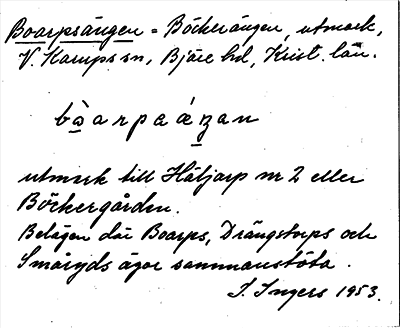 Boarpsängen = Böckerängen, utmark,
V. Karups sn, Bjäre hd, Krist. län.
bòarpaáŋan
utmark till Håljarp nr 2 eller
Böckergården.
Belägen där Boarps, Drängstorps och
Småryds ägor sammanstöta.
I. Ingers 1953.